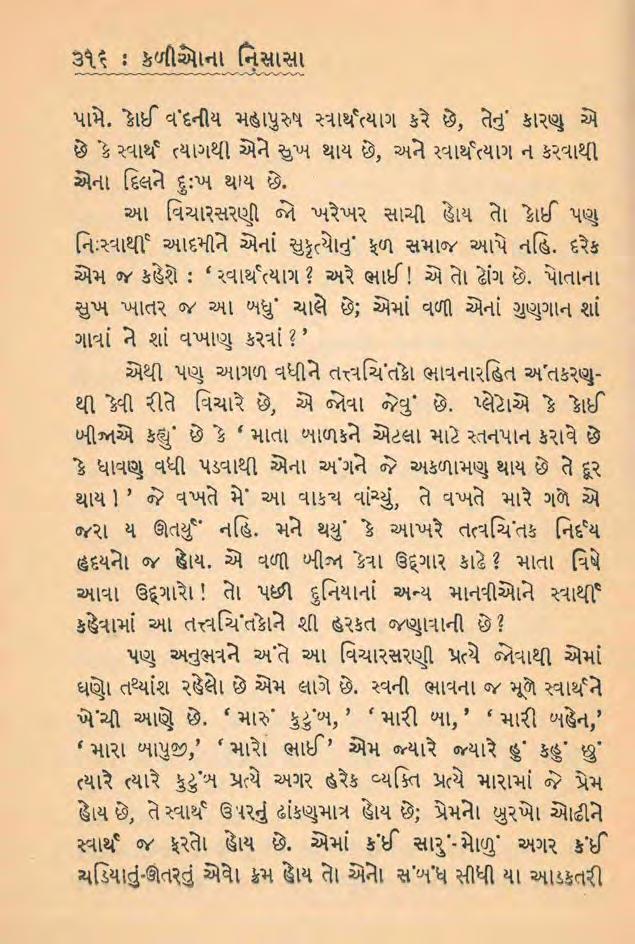 ૩૧૬ : કળીઓના નિસાસા
પામે. કોઈ વંદનીય મહાપુરુષ સ્વાર્થત્યાગ કરે છે, તેનું કારણ એ
છે કે સ્વાર્થ ત્યાગથી એને સુખ થાય છે, અને સ્વાર્થત્યાગ ન કરવાથી
એના દિલને દુઃખ થાય છે.
આ વિચારસરણી જો ખરેખર સાચી હોય તો કોઈ પણ
નિઃસ્વાર્થી આદમીને એનાં સુકૃત્યોનું ફળ સમાજ આપે નહિ. દરેક
એમ જ કહેશે : ‘સ્વાર્થત્યાગ? અરે ભાઈ! એ તો ઢોંગ છે. પોતાના
સુખ ખાતર જ આ બધું ચાલે છે; એમાં વળી એનાં ગુણગાન શાં
ગાવાં ને શાં વખાણ કરવાં?’
એથી પણ આગળ વધીને તત્ત્વચિંતકો ભાવનારહિત અંતકરણ-
થી કેવી રીતે વિચારે છે, એ જોવા જેવું છે. પ્લેટોએ કે કોઈ
બીજાએ કહ્યું છે કે ‘માતા બાળકને એટલા માટે સ્તનપાન કરાવે છે
કે ધાવણ વધી પડવાથી એના અંગને જે અકળામણ થાય છે તે દૂર
થાય!’ જે વખતે મેં આ વાક્ય વાંચ્યું, તે વખતે મારે ગળે એ
જરા ય ઊતર્યું નહિ. મને થયું કે આખરે તત્વચિંતક નિર્દય
હૃદયનો જ હોય. એ વળી બીજા કેવા ઉદ્ગાર કાઢે? માતા વિષે
આવા ઉદ્ગારો! તો પછી દુનિયાનાં અન્ય માનવીઓને સ્વાર્થી
કહેવામાં આ તત્ત્વચિંતકોને શી હરકત જણાવાની છે?
પણ અનુભવને અંતે આ વિચારસરણી પ્રત્યે જોવાથી એમાં
ઘણો તથ્યાંશ રહેલો છે એમ લાગે છે. સ્વની ભાવના જ મૂળે સ્વાર્થને
ખેંચી આણે છે. ‘મારું કુટુંબ,’ ‘મારી બા,’ ‘મારી બહેન,’
‘મારા બાપુજી,’ ‘મારો ભાઈ’ એમ જ્યારે જ્યારે હું કહું છું
ત્યારે ત્યારે કુટુંબ પ્રત્યે અગર હરેક વ્યક્તિ પ્રત્યે મારામાં જે પ્રેમ
હોય છે, તે સ્વાર્થ ઉપરનું ઢાંકણમાત્ર હોય છે; પ્રેમનો બુરખો ઓઢીને
સ્વાર્થ જ ફરતો હોય છે. એમાં કંઈ સારું-મોળું અગર કંઈ
ચડિયાતું-ઊતરતું એવો ક્રમ હોય તો એનો સંબંધ સીધી યા આડકતરી